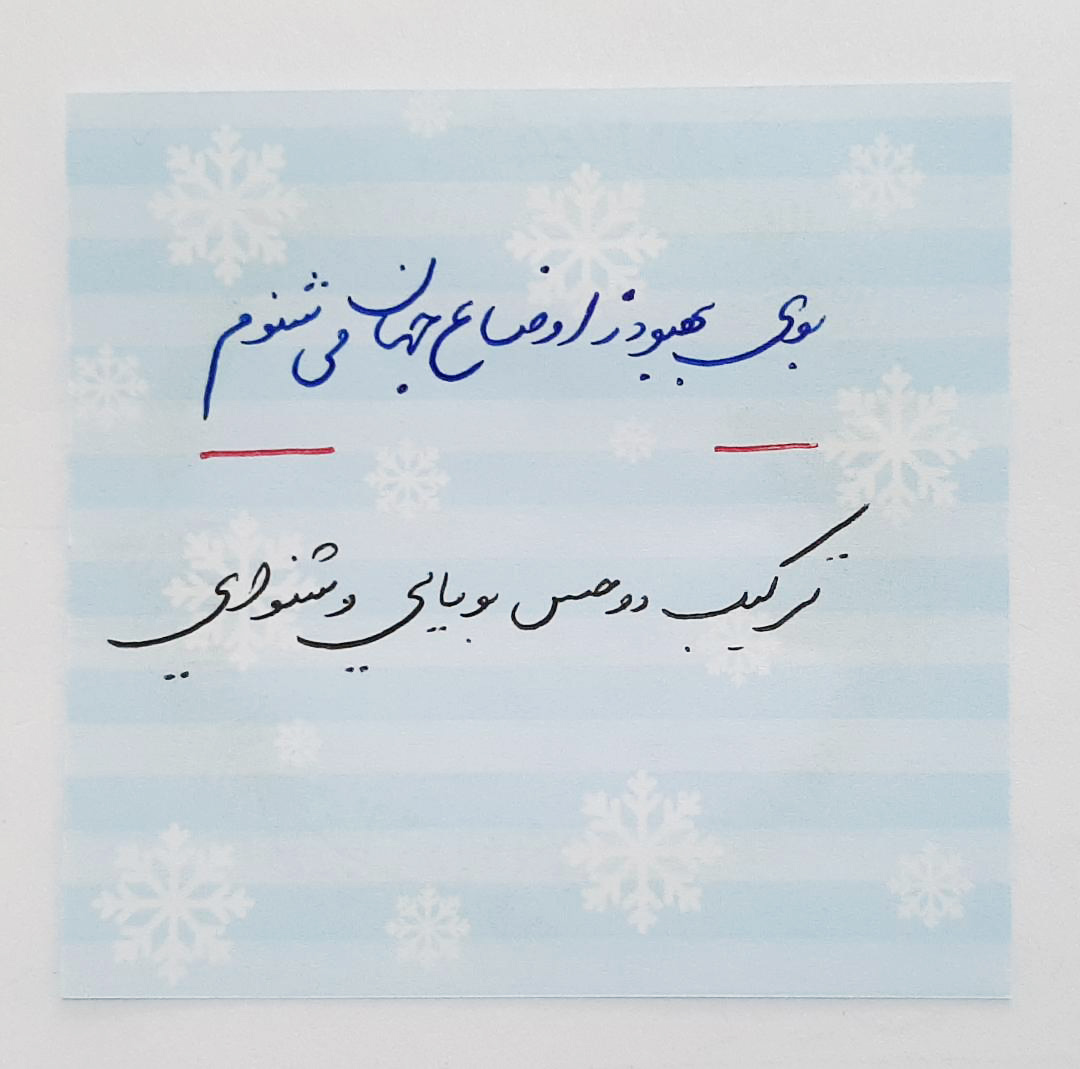 بوی بهبود ز اوضاع جهان می شنوم
ترکیب دو حس بویایی و شنوایی